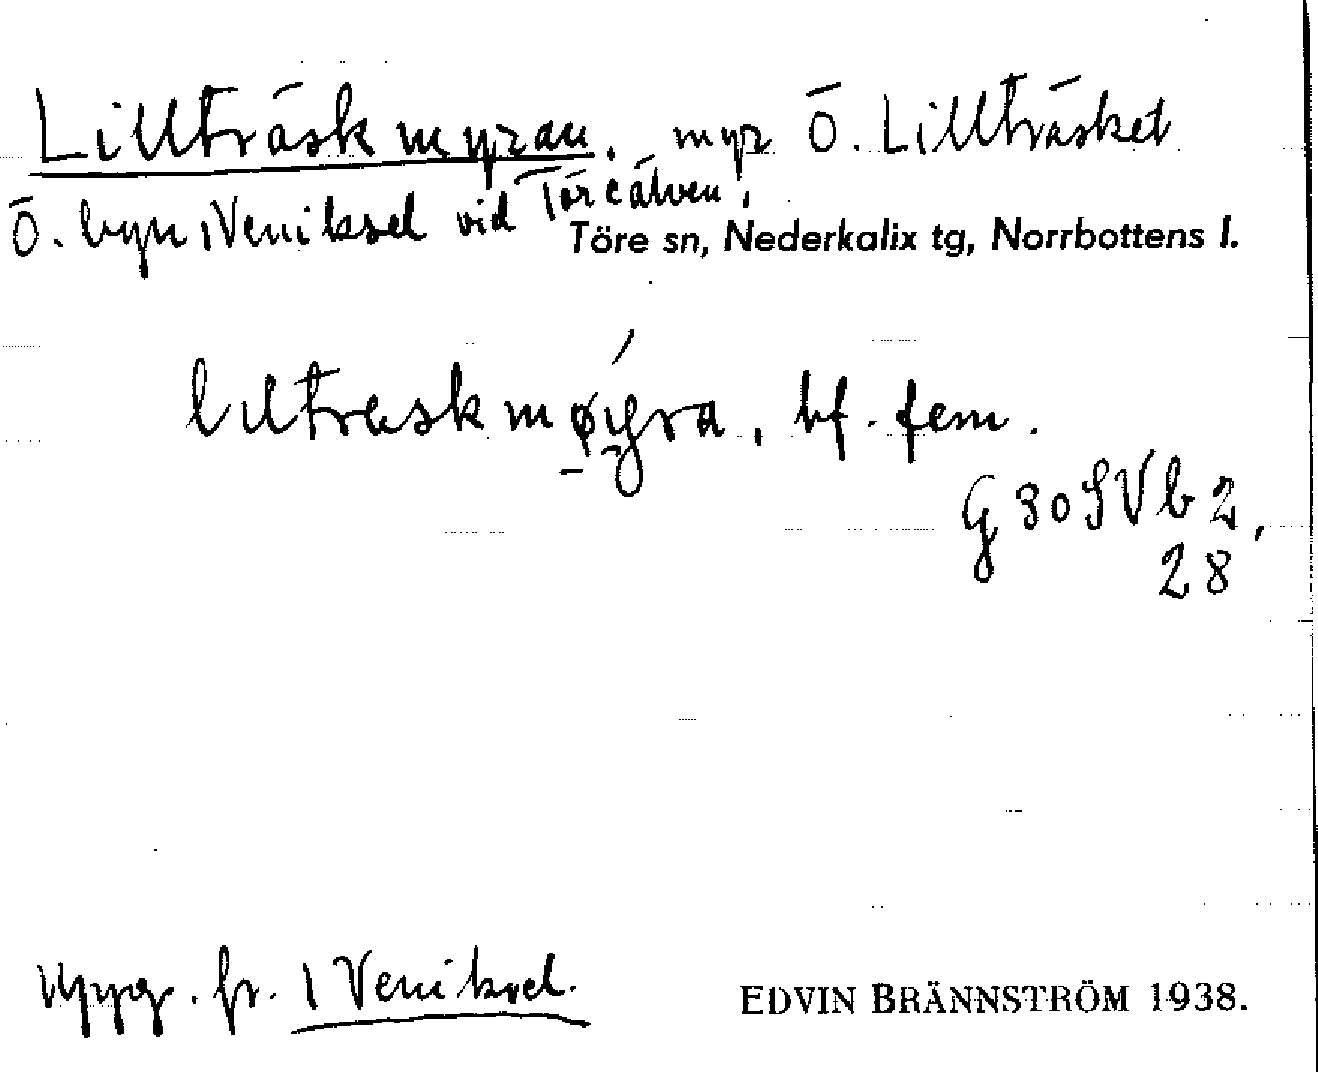 Lillträskmyran. myr Ö. Lillträsket
Ö. byn 1 Veniksel vid Töreälven,
Töre sn, Nederkalix tg, Norrbottens l.
bf. fem.
G 30 SV b 2,
28
Uppg. fr. 1 Veniksel.
EDVIN BRÄNNSTRÖM 1938.